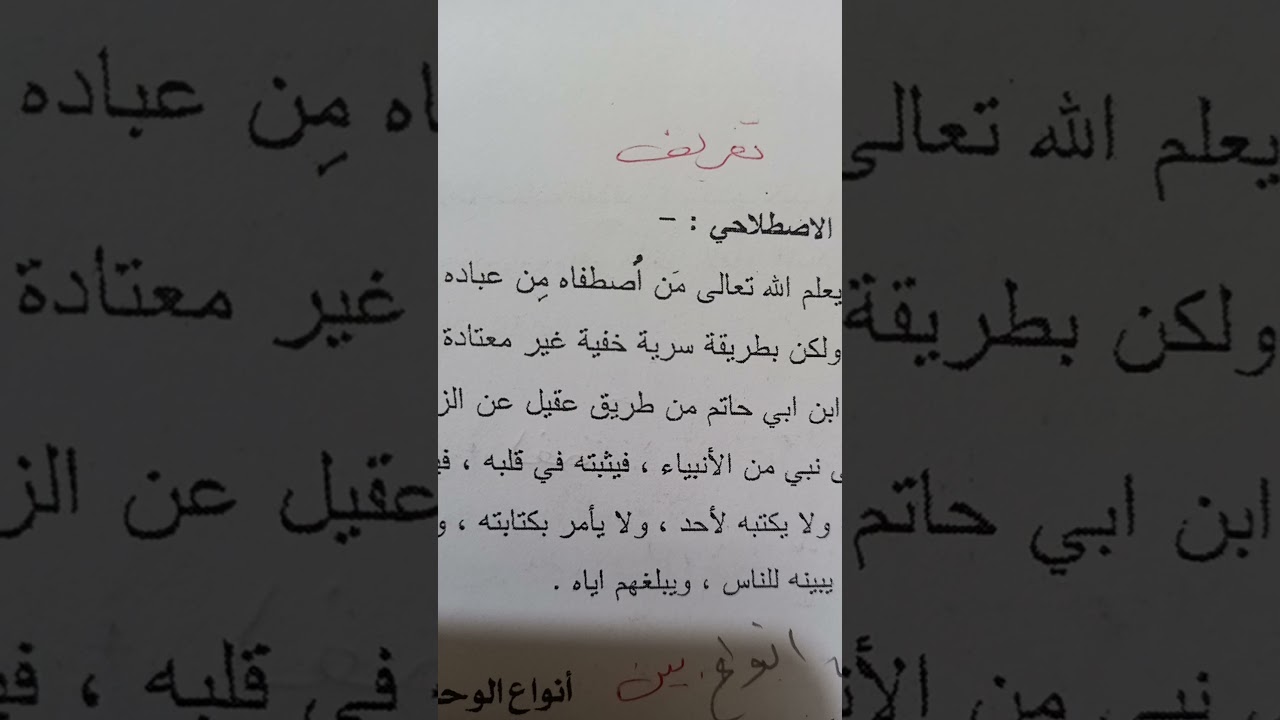 تعريف
الاصطلاحي : -
يعلم الله تعالى مَن أُصطفاه مِن عباده
ولكن بطريقة سرية خفية غير معتادة
ابن ابي حاتم من طريق عقيل عن الز
نبي من الأنبياء ، فيثبته في قلبه ، في
ولا يكتبه لأحد ، ولا يأمر بكتابته ، و
يبينه للناس ، ويبلغهم اياه .
انواع بين
أنواع الوح